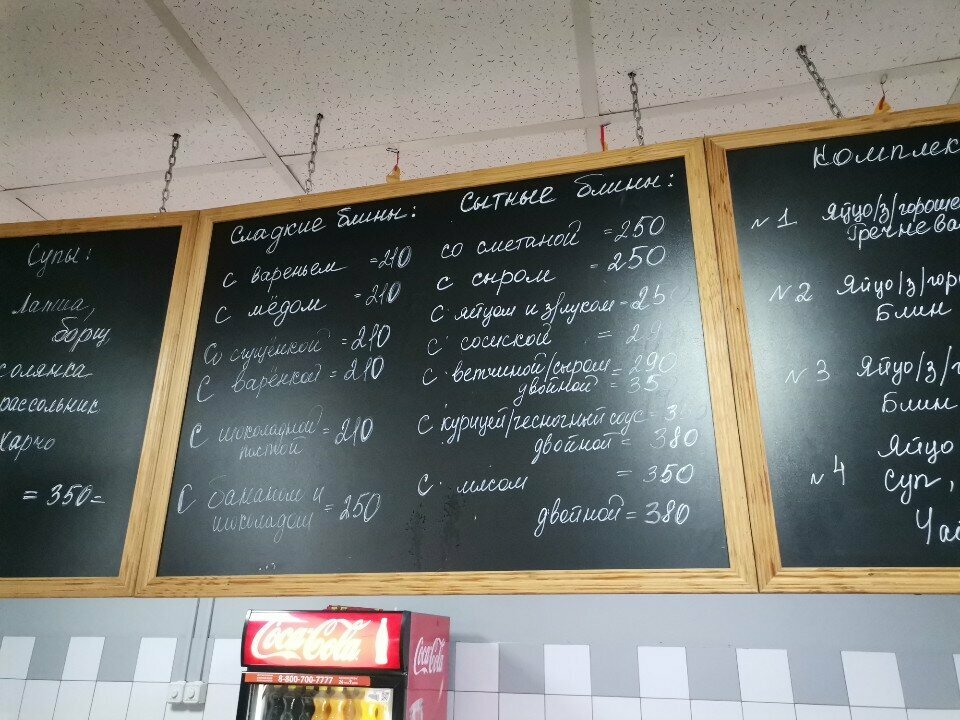 Супы:
Лапша,
борщ
солянка
рассольник
Харчо
= 350=
Сладкие блины:
С вареньем =210
С мёдом =210
Со сгущёнкой =210
С варёнкой =210
С шоколадной пастой =210
С бананом и
шоколадом =250
Сытные блины:
со сметаной =250
с сыром =250
с яйцом и з/луком=
с сосиской =
с ветчиной/сыром =290
двойной =
с курицей/чесночный соус =
двойной = 380
с мясом = 350
двойной = 380
Комплек
N1 Яйцо/з/гороше
Гречнева
N2 Яйцо/з/горо
Блин
N3 Яйцо/з/г
Блин
N4 Яйцо
суп,
Чай
Coca-Cola
Coca-Cola
8-800-700-7777